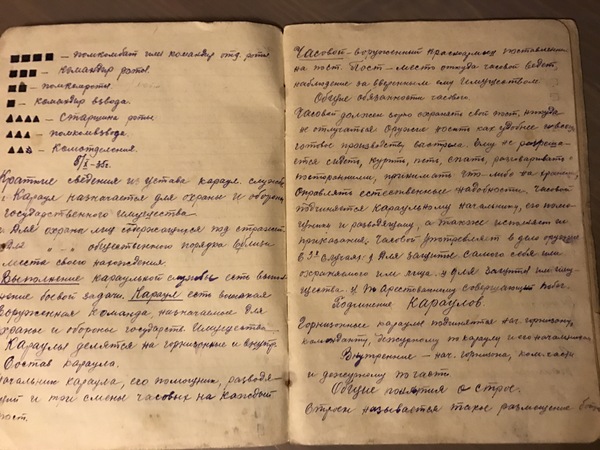 – помкомбат или командир отд. роты
– командир роты.
– помкомроты.
– командир взвода.
– Старшина роты
– помкомвзвода.
– Комотделения.
Краткие сведения из устава караул. службы
Караул назначается для охраны и обороны
государственного имущества.
Для охраны лиц содержащихся под стражей.
Для " " общественного порядка
места своего нахождения
Выполнение караульной службы есть выпол
нение боевой задачи. Караул есть
вооруженная команда, назначаемая для
охраны и обороны государств имущества.
Караулы делятся на гарнизонные и внутр.
Состав караула.
Начальник караула, его помощник, разводя-
щий и три смены часовых на каждый
пост.
Часовой – вооруженный красноармеец поставленный
на пост. Пост – место откуда часовой ведет
наблюдение за вверенным ему имуществом
Общие обязанности часовых.
Часовой должен зорко охранять свой пост, никуда
не отлучатся оружие носить как удобнее но всегда
готовое производству выстрела. Ему не разреша-
ется сидеть, курить, петь, спать, разговаривать с
посторонними, принимать что либо на хранение,
справлять естественные надобности. Часовой
подчиняется караульному начальнику, его помо-
щнику и разводящему, а также исполняет их
приказания. Часовой употребляет в дело оружие
в 3х случаях: 1) Для защиты самого себя или
охраняемого им лица. 2) Для защиты им иму-
щества. 3) По арестованному совершающему побег.
Подчинение Караулов.
Гарнизонные караулы подчиняются нач. гарнизону,
коменданту, дежурному по караулу и его
Внутренние – нач. гарнизона, ком. части
и дежурному по части.
Общие понятия о строе.
Строем называется такое размещение